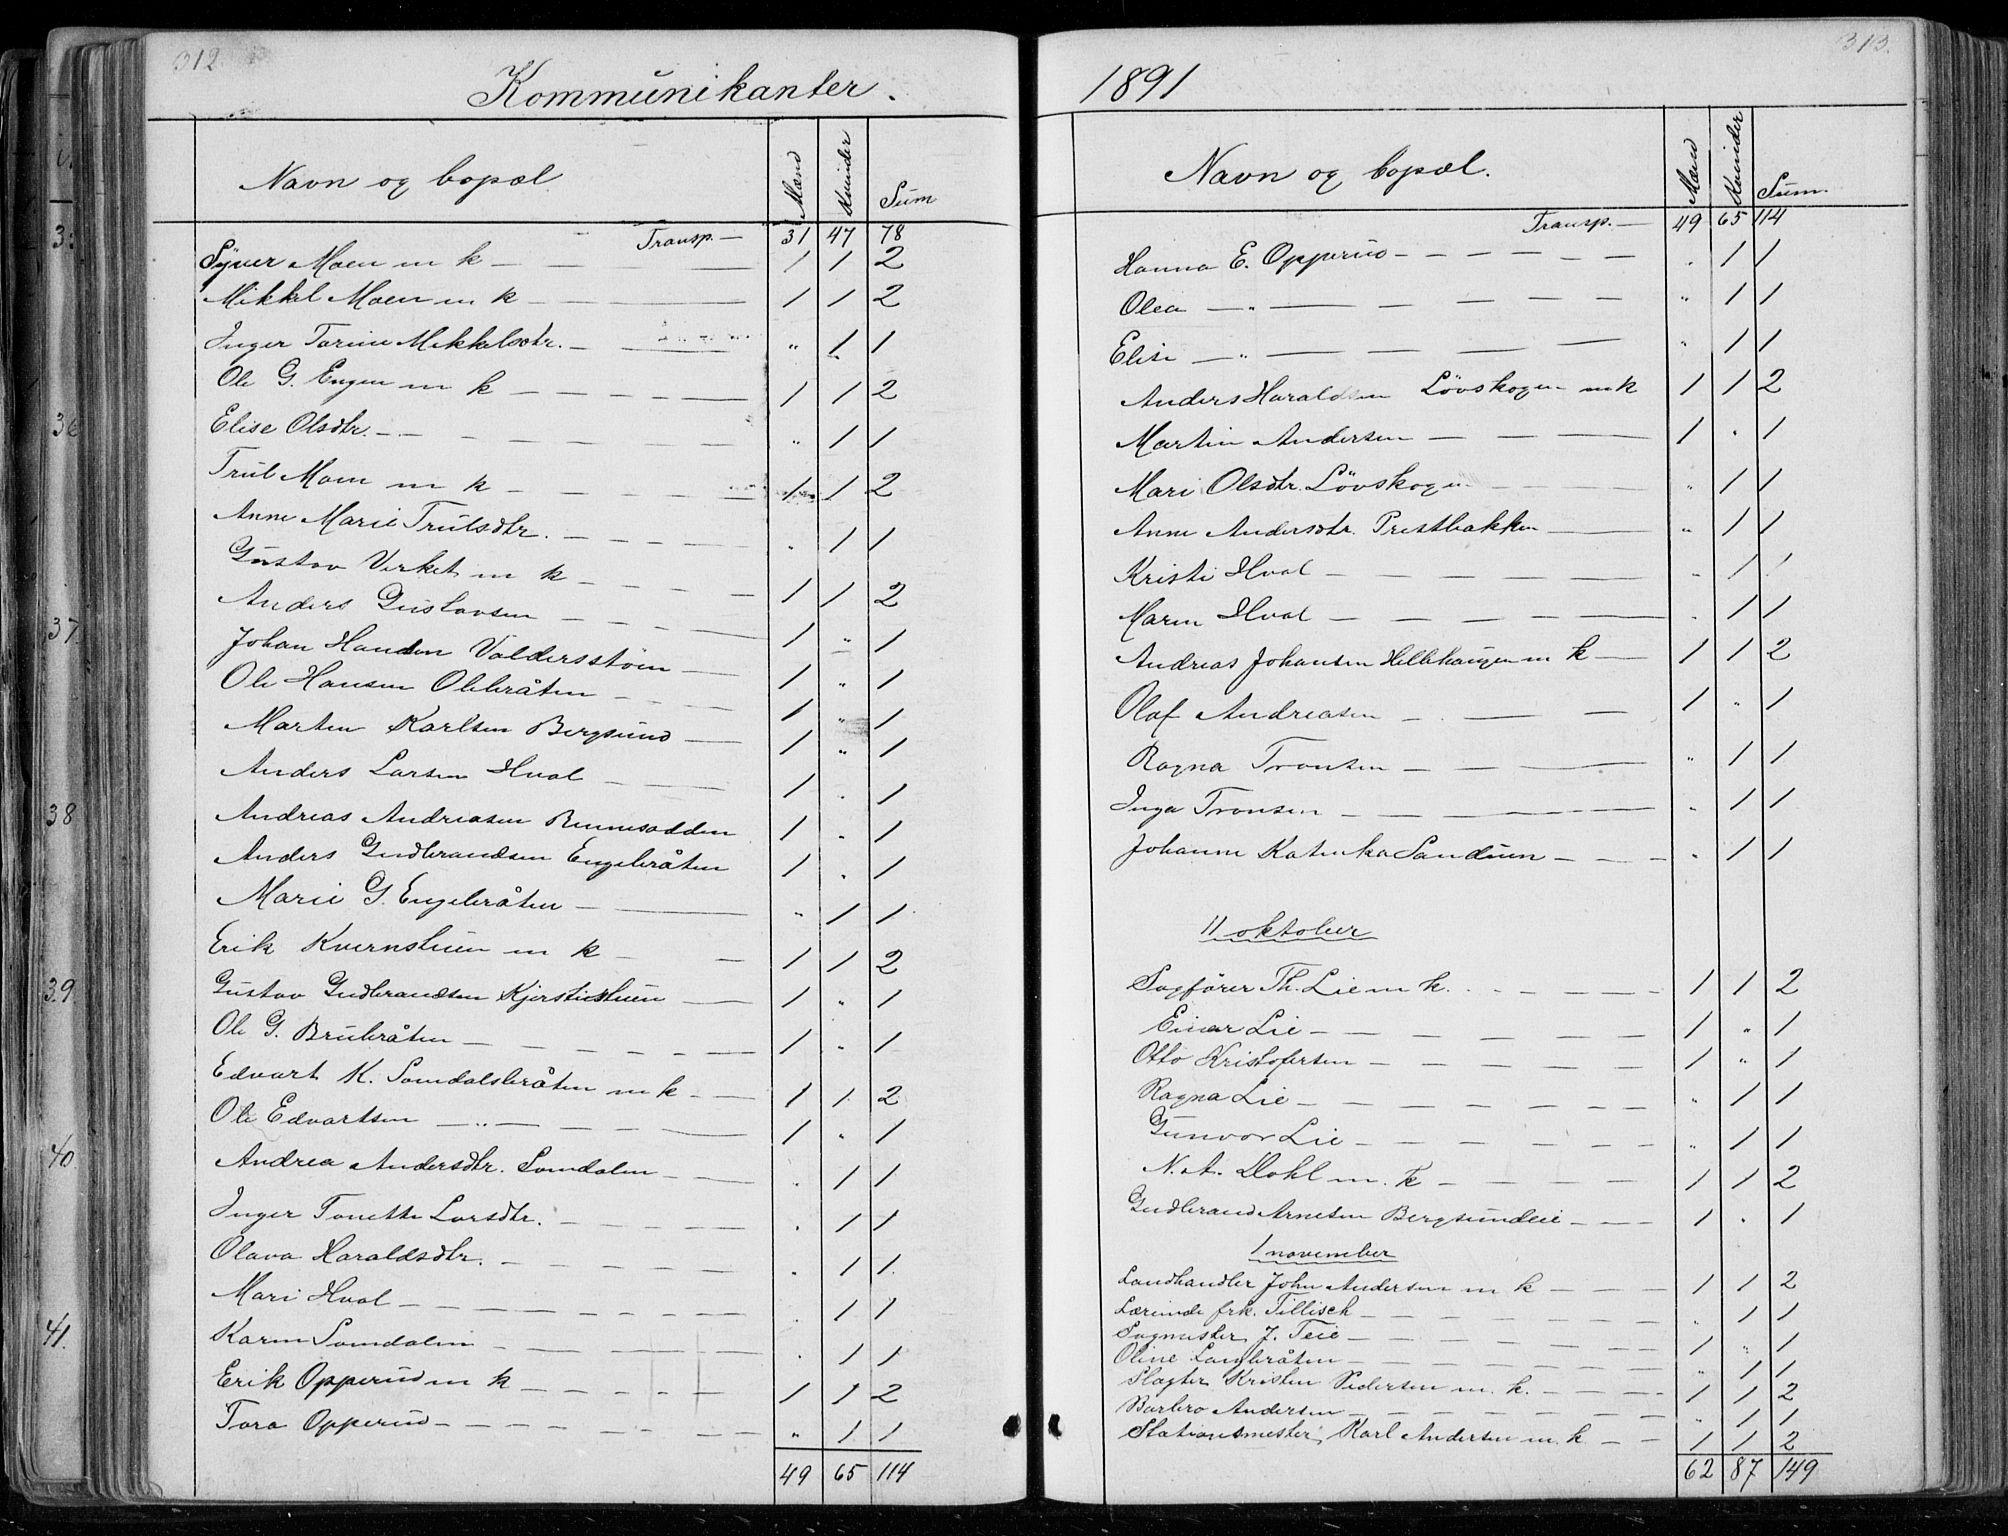 312
Kommunikanter.
Navn og bopæl Mænd Kvinder Sum
Transp. — 31 47 78
Syver Moen m k — 1 1 2
Mikkel Moen m k — 1 1 2
Inger Torine Mikkelsdtr. — " 1 1
Ole G. Engen m k — 1 1 2
Elise Olsdtr. — " 1 1
Trul Moen m k — 1 1 2
Anne Marie Trulsdtr. — . 1 1
Gustav Verket m k — 1 1 2
Anders Gustavsen — 1 " 1
Johan Hansen Valdersstøen — 1 " 1
Ole Hansen Olebråten — 1 " 1
Marten Karlsen Bergsund — 1 " 1
Anders Larsen Hval — 1 . 1
Andreas Andreasen Rennesodden 1 . 1
Anders Gudbrandsen Engebråten 1 . 1
Marie G. Engebråten — " 1 1
Erik Kvernstuen m k — 1 1 2
Gustav Gudbrandsen Kjerstistuen — 1 " 1
Ole G. Brubråten — 1 " 1
Edvart K. Somdalsbråten m k — 1 1 2
Ole Edvartsen — " — 1 " 1
Andrea Andersdtr. Somdalen — . 1 1
Inger Tonette Larsdtr. — . 1 1
Olava Haraldsdtr. — . 1 1
Mari Hval — . 1 1
Karen Somdalen — . 1 1
Erik Opperud m k — 1 1 2
Tora Opperud — " 1 1
49 65 114
313.
1891
Navn og bopæl. Mænd Kvinder Sum.
Transp. — 49 65 114
Hanna E. Opperud — . 1 1
Olea — " — " 1 1
Elise — " — " 1 1
Anders Haraldsen Lövskogen m k 1 1 2
Martin Andersen — 1 . 1
Mari Olsdtr. Lövskogen " 1 1
Anne Andersdtr. Prestbakken — " 1 1
Kristi Hval — " 1 1
Maren Hval — . 1 1
Andreas Johansen Hellehaugen m k — 1 1 2
Olaf Andreasen — 1 . 1
Ragna Tronsen — " 1 1
Inga Tronsen — " 1 1
Johanne Katinka Sanduen — . 1 1
11 oktober
Sagförer Th. Lie m k. — 1 1 2
Einar Lie — 1 " 1
Otto Kristofersen — 1 " 1
Ragna Lie — " 1 1
Gunvor Lie — " 1 1
N. A. Dahl m. k — 1 1 2
Gudbrand Arnesen Bergsundeie — 1 . 1
1 november
Landhandler John Andersen m k — 1 1 2
Lærerinde frk. Tillisch — " 1 1
Sagmester J. Teie — 1 " 1
Oline Langbråten — " 1 1
Slagter Kristen Pedersen m. k. — 1 1 2
Barbro Andersen — " 1 1
Stationsmester Karl Andersen m. k — 1 1 2
62 87 149
35
36
37.
38
39.
40
41.